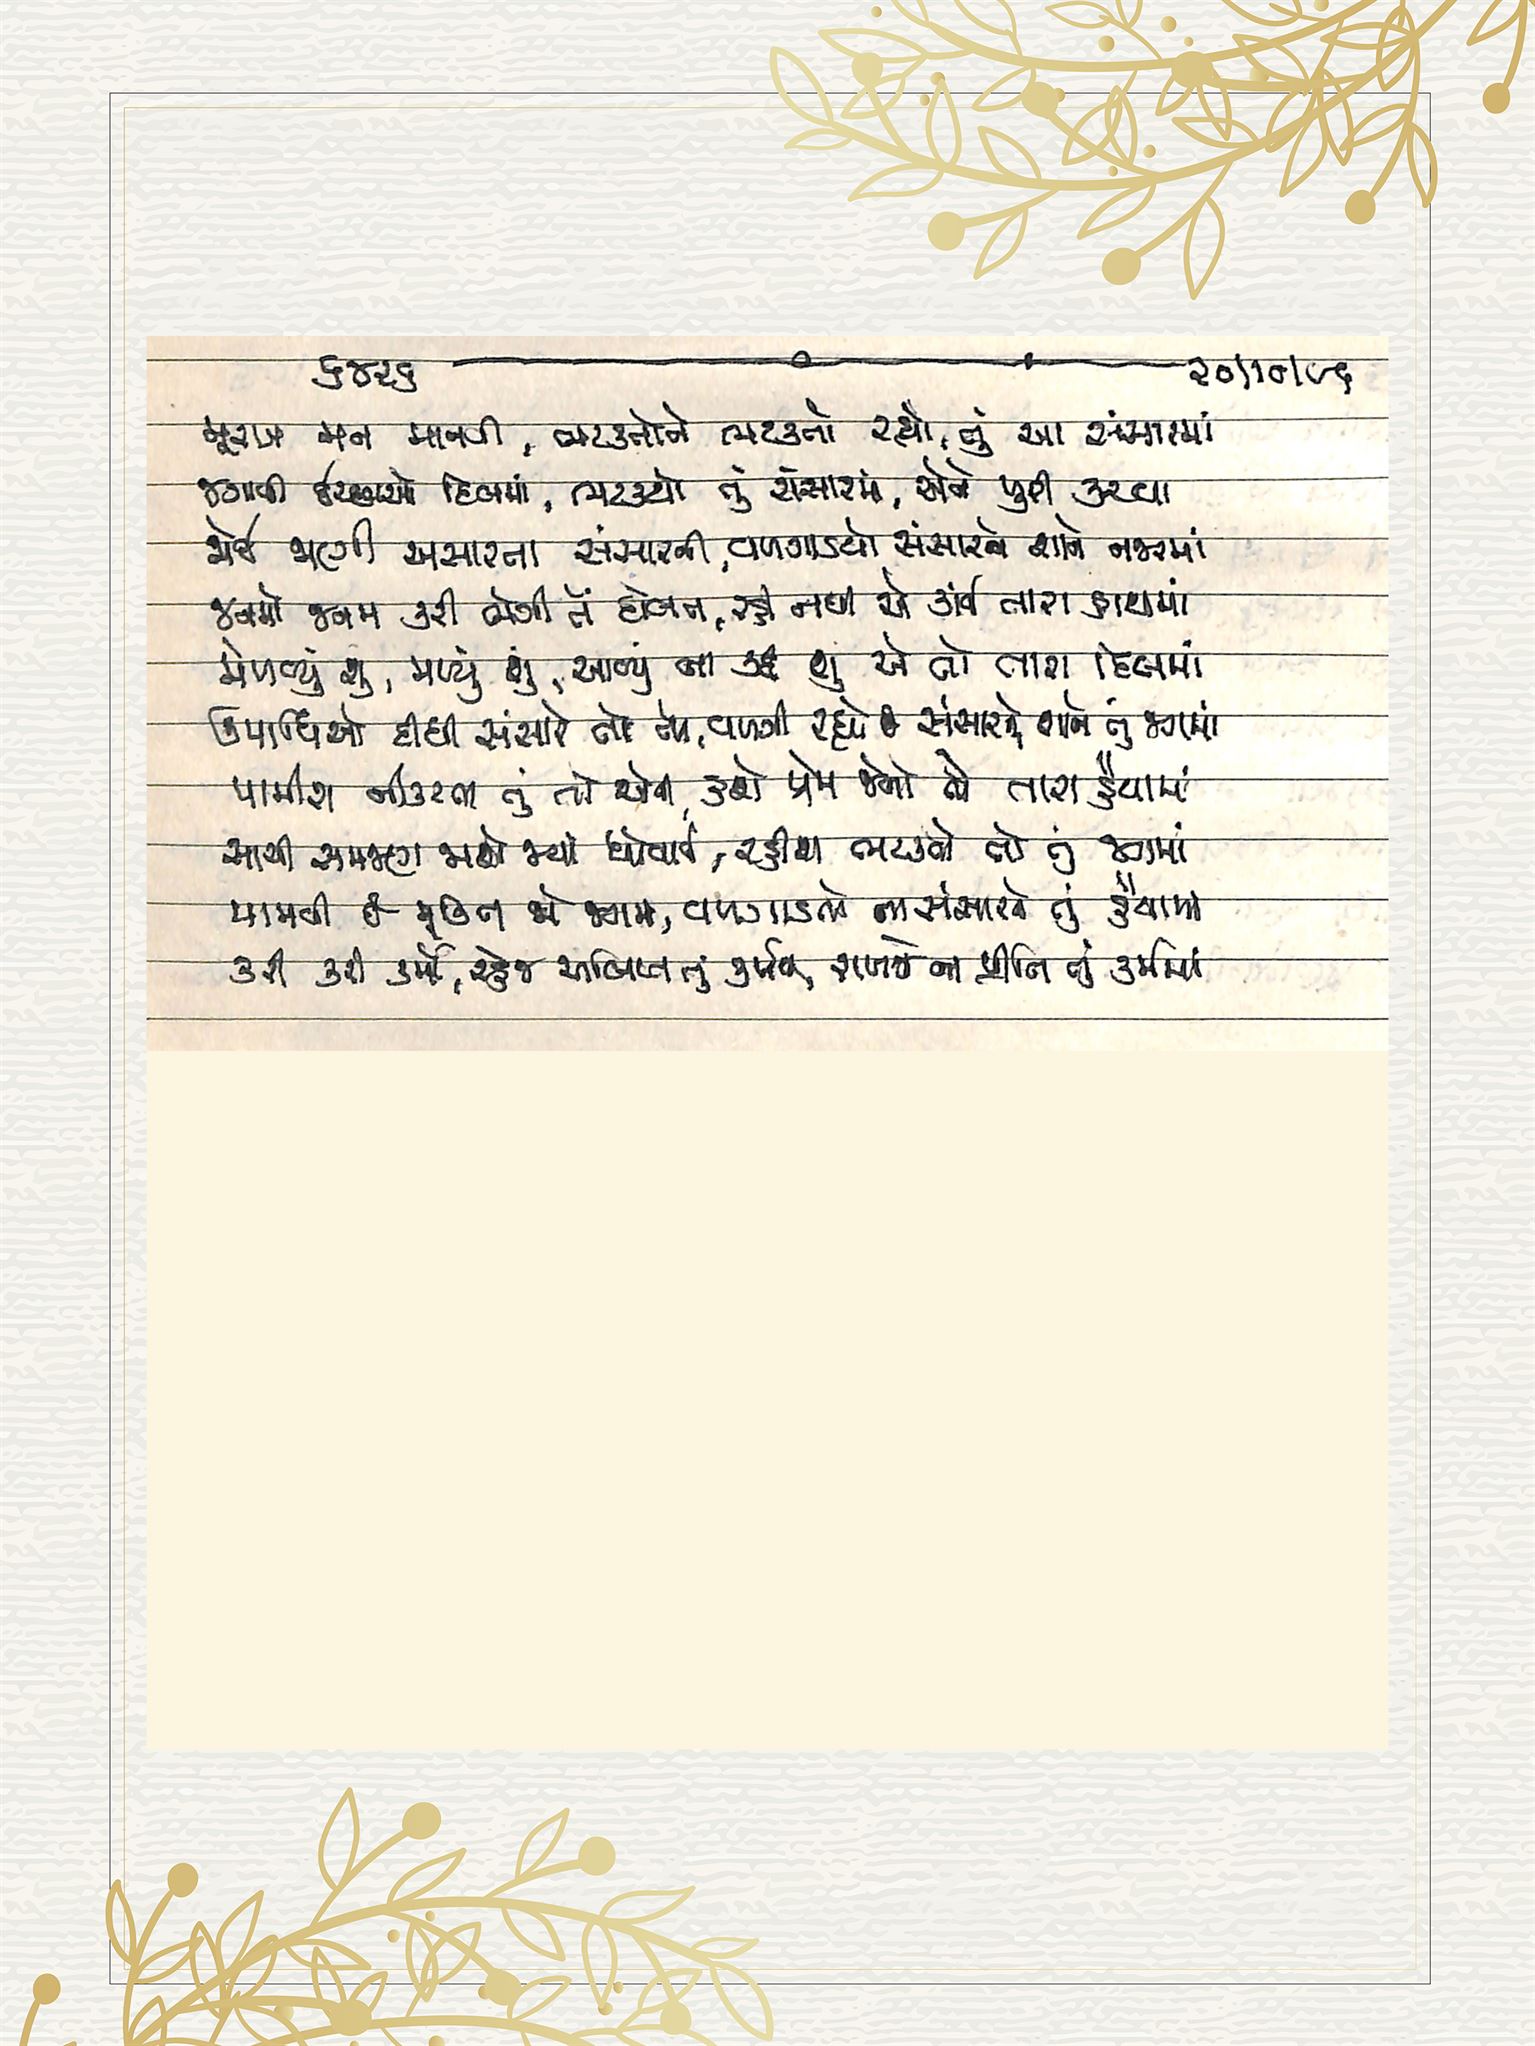 ૬૪૨૬ ૨૦/૧૦/૮૬
મૂરખ મન માનવી, ભટકતોને ભટકતો રહ્યો, તું આ સંસારમાં
જગાવી ઈચ્છાઓ દિલમાં, ભટક્યો તું સંસારમાં, એને પુરી કરવા
અસારના સંસારની, વળગાડયો સંસારને શાને નજરમાં
જનમો જનમ કરી ભેગી તેં દોલત, રહી નથી એ કાંઈ તારા હાથમાં
મેળવ્યું શું, મળ્યું શું, આવ્યું ના કંઈ શું એ તો તારા દિલમાં
ઉપાધિઓ દીધી સંસારે તો તને, વળગી રહ્યો છે સંસારને શાને તું જગમાં
પામીશ નીકટતા તું તો એવા, હશે પ્રેમ જેનો તો તારા હૈયામાં
સાચી સમજણ જાશે જ્યાં ખોવાઈ, રહીશ ભટકતો તો તું જગમાં
પામવી છે મુક્તિ જો જગમાં, વળગાડતો ના સંસારને તું હૈયામાં
કરી કરી કર્મો, રહેજે અલિપ્ત તું કર્મથી, રાખજે ના પ્રીતિ તું કર્મમાં